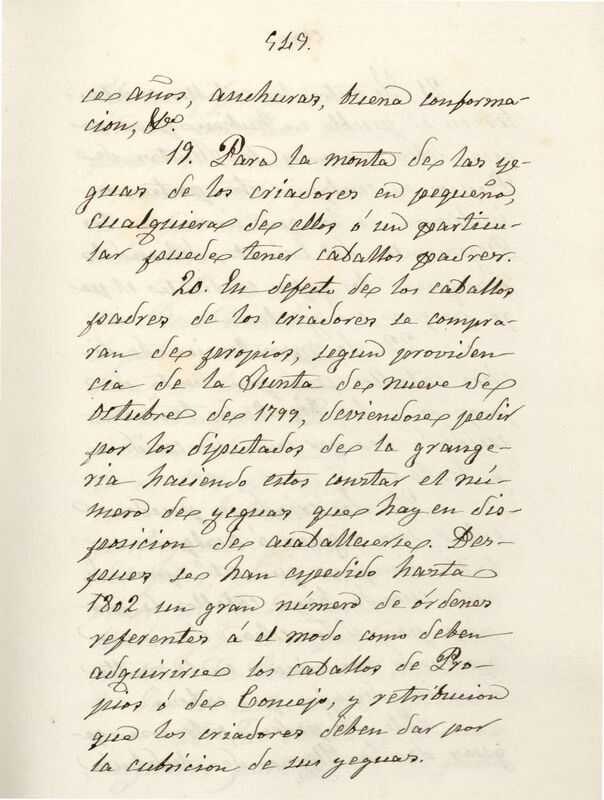 549.
ce años, anchuras, buena conforma-
cion, &ª
19. Para la monta de las ye-
guas de los criadores en pequeño,
cualquiera de ellos ó un particu-
lar puede tener caballos padres.
20. En defecto de los caballos
padres de los criadores se compra-
ran de propios, segun providen-
cia de la Junta de nueve de
Octubre de 1799, deviendose pedir
por los diputados de la grange-
ria haciendo estos constar el nú-
mero de yeguas que hay en dis-
posicion de acaballarse. Des-
pues se han espedido hasta
1802 un gran número de órdenes
referentes á el modo como deben
adquirirse los caballos de Pro-
pios ó de Concejo, y retribucion
que los criadores deben dar por
la cubricion de sus yeguas.